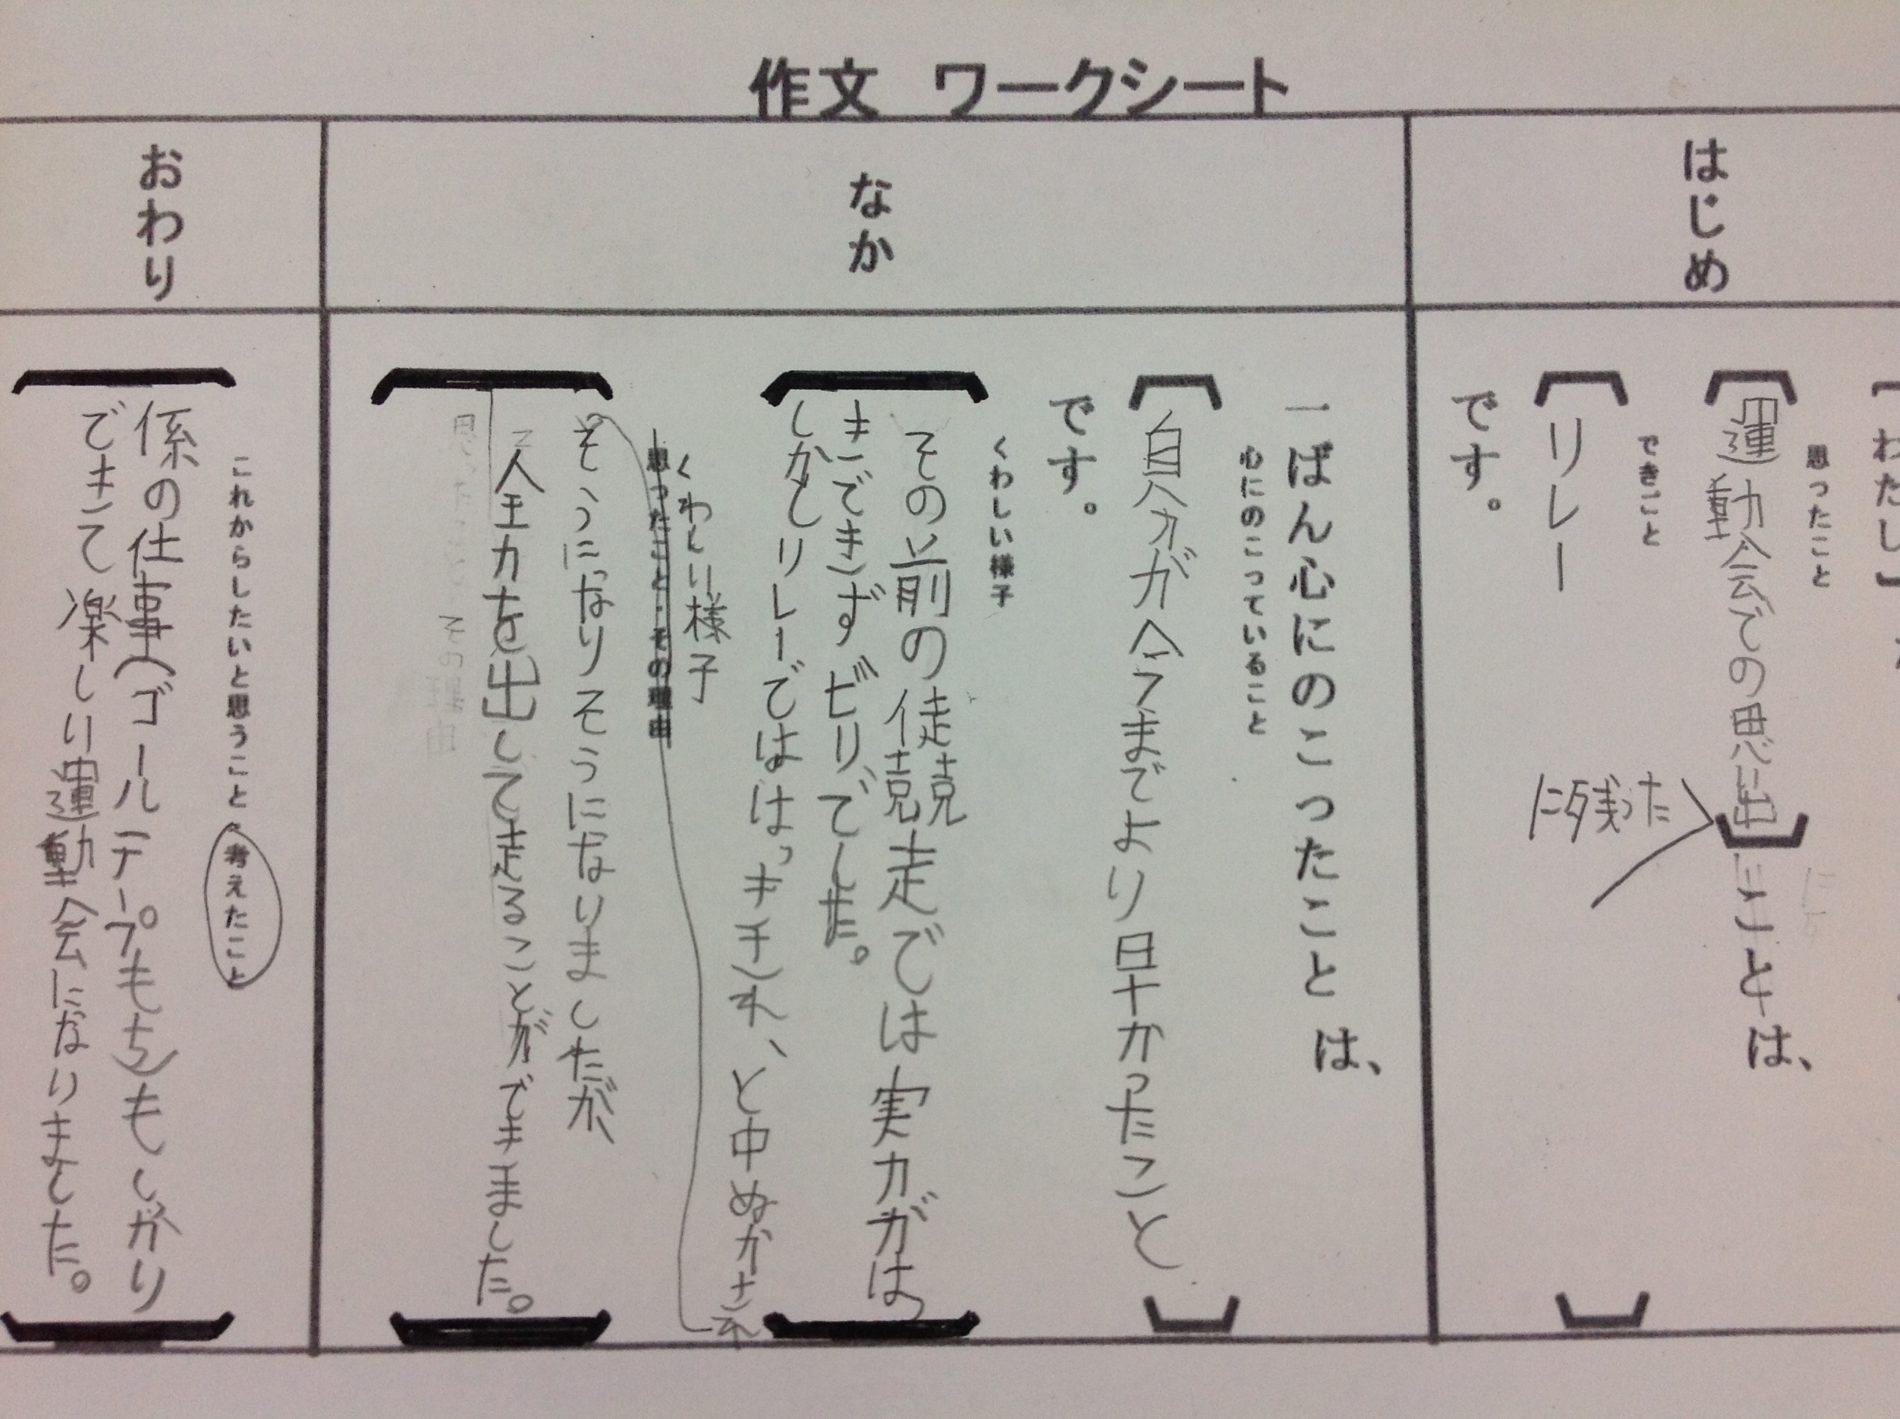 作文 ワークシート
はじめ
［わたし］
思ったこと
［運動会での思い出］ことは、
に残った
できごと
［リレー］
です。
なか
一ばん心にのこったことは、
心にのこっていること
［自分が今までより早かったこと］
です。
くわしい様子
［その前の徒競走では実力がはっ
きできずビリでした。
しかしリレーでははっきされ、と中ぬかされ］
くわしい様子
思ったこと・その理由
［そうになりそうになりましたが、
全力を出して走ることができました。］
おわり
これからしたいと思うこと、考えたこと
［係の仕事(ゴールテープもち)もしっかり
できて楽しい運動会になりました。］